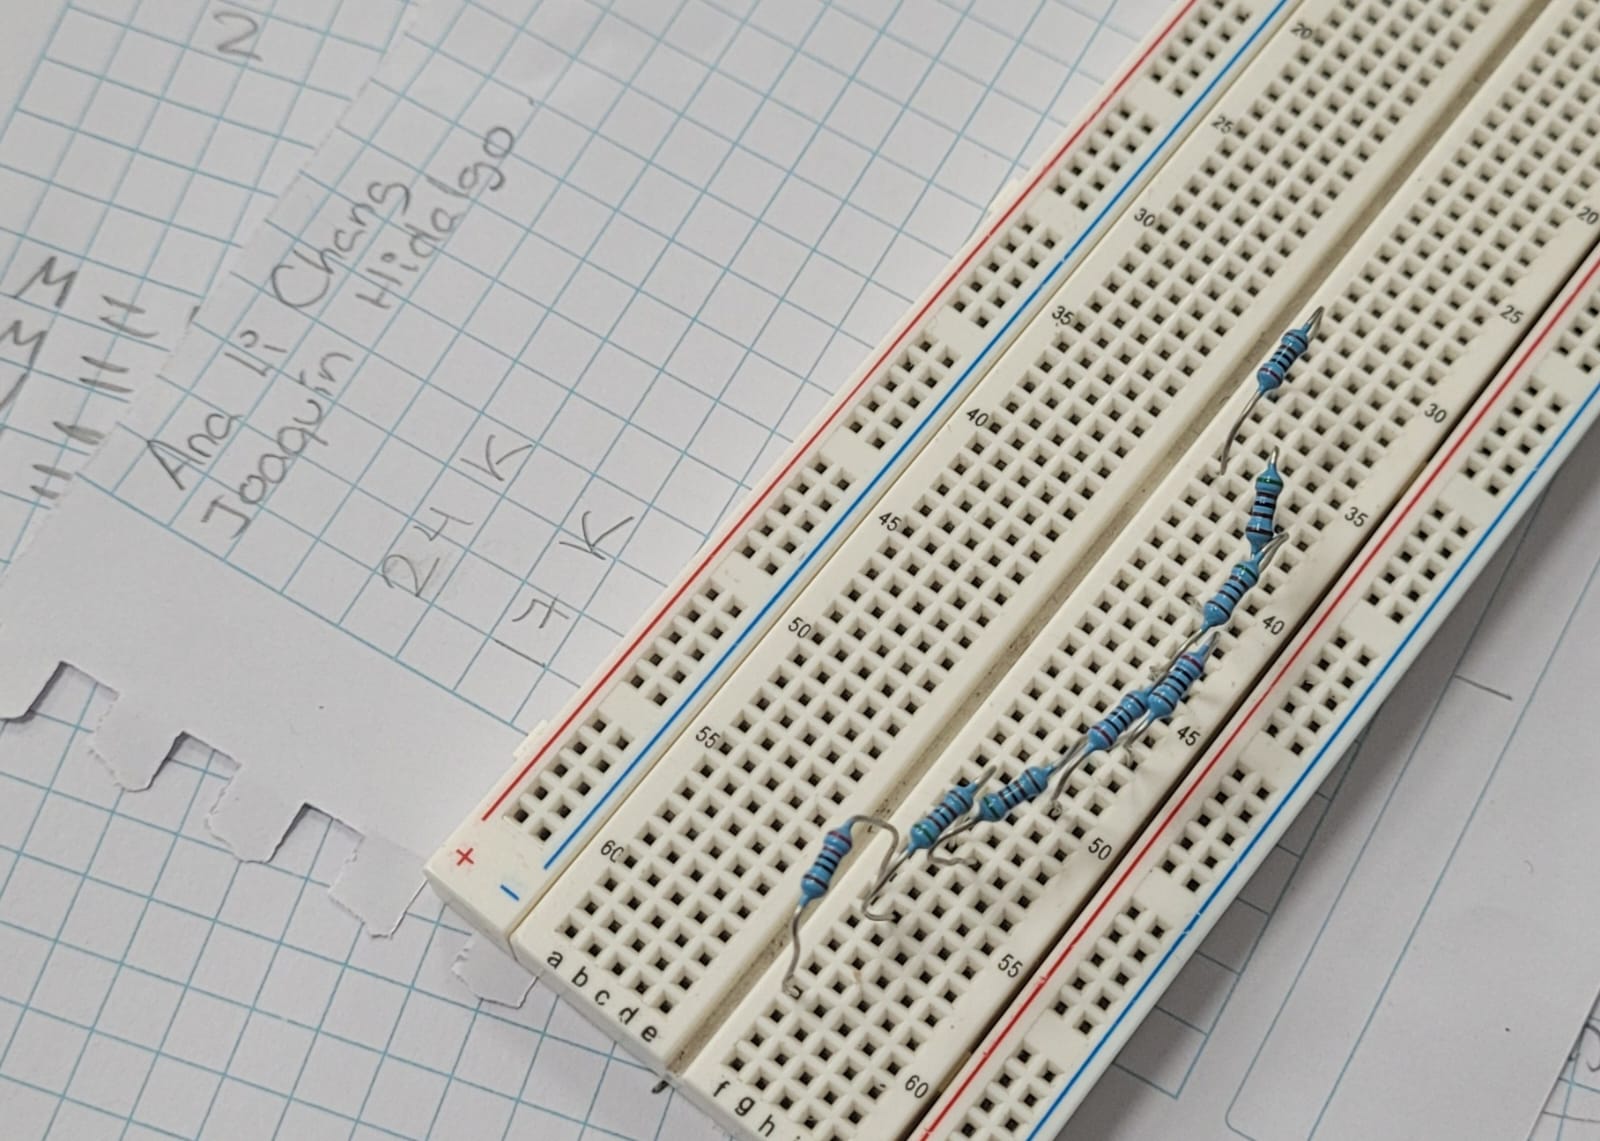 N
M
M
Ana Li Chang
Joaquín Hidalgo
24 K
7 K
20
25
30
35
40
45
50
55
60
a b c d e
+
−
20
25
30
35
40
45
50
55
60
f g h